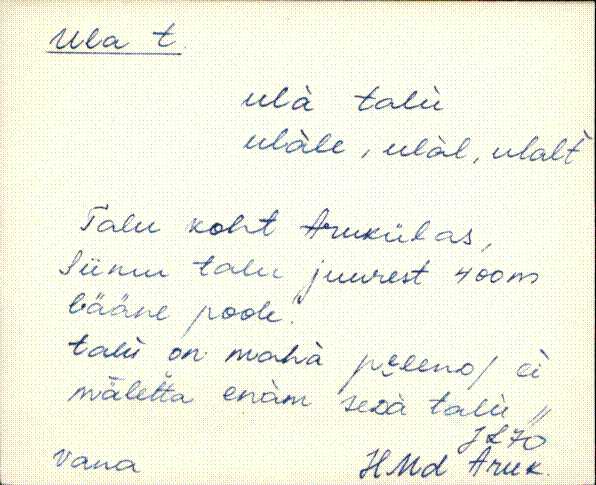 Ula t.
ulà talù
ulàle, ulàl, ulalt
Talu koht Arukülas,
Siimu talu juurest 400m
lääne poole.
"talù on mahà põlenD / ei
mäletta enàm sedà talù"
JK70
vana HMd Aruk.